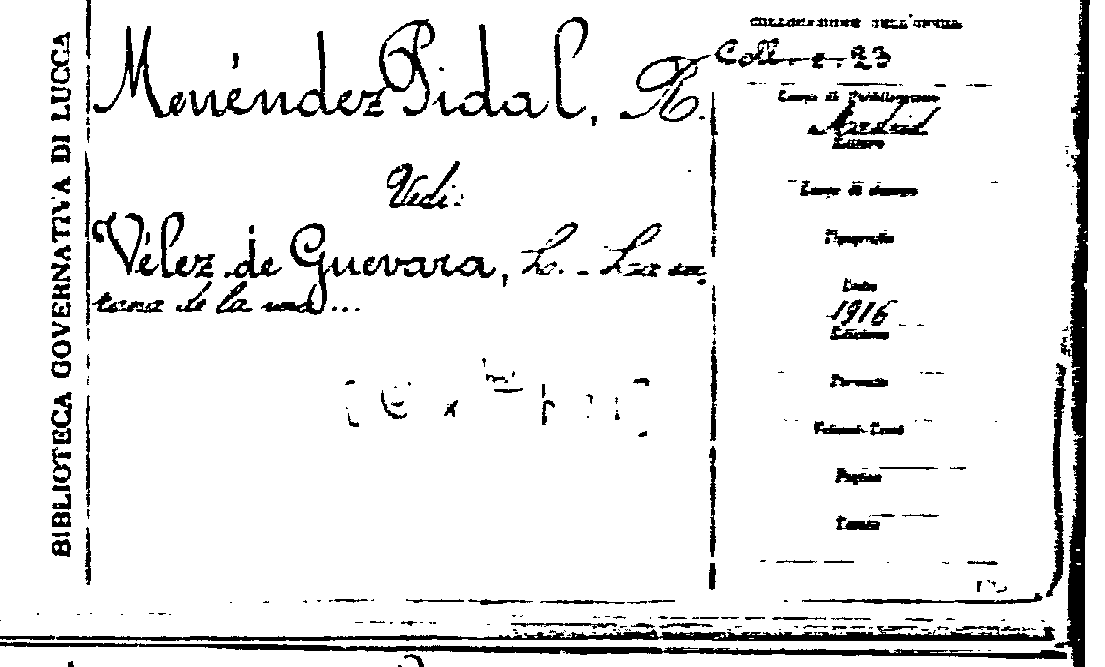 BIBLIOTECA GOVERNATIVA DI LUCCA
Menéndez Pidal, R.
Vedi:
Vélez de Guevara, L. - La
de la
COLLOCAZIONE DELL'OPERA
Coll. 23
Luogo di Pubblicazione
Madrid
Editore
Luogo di stampa
Tipografia
Data
1916
Edizione
Formato
Volumi
Pagine
Tavole